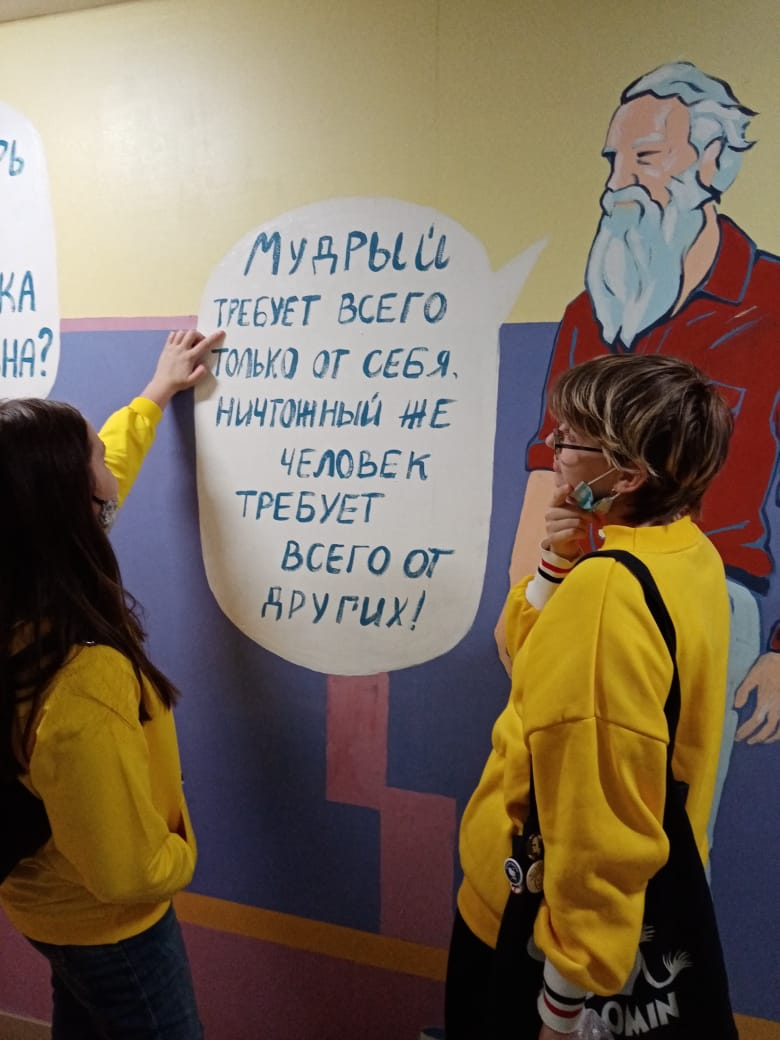 МУДРЫЙ
ТРЕБУЕТ ВСЕГО
ТОЛЬКО ОТ СЕБЯ.
НИЧТОЖНЫЙ ЖЕ
ЧЕЛОВЕК
ТРЕБУЕТ
ВСЕГО ОТ
ДРУГИХ!